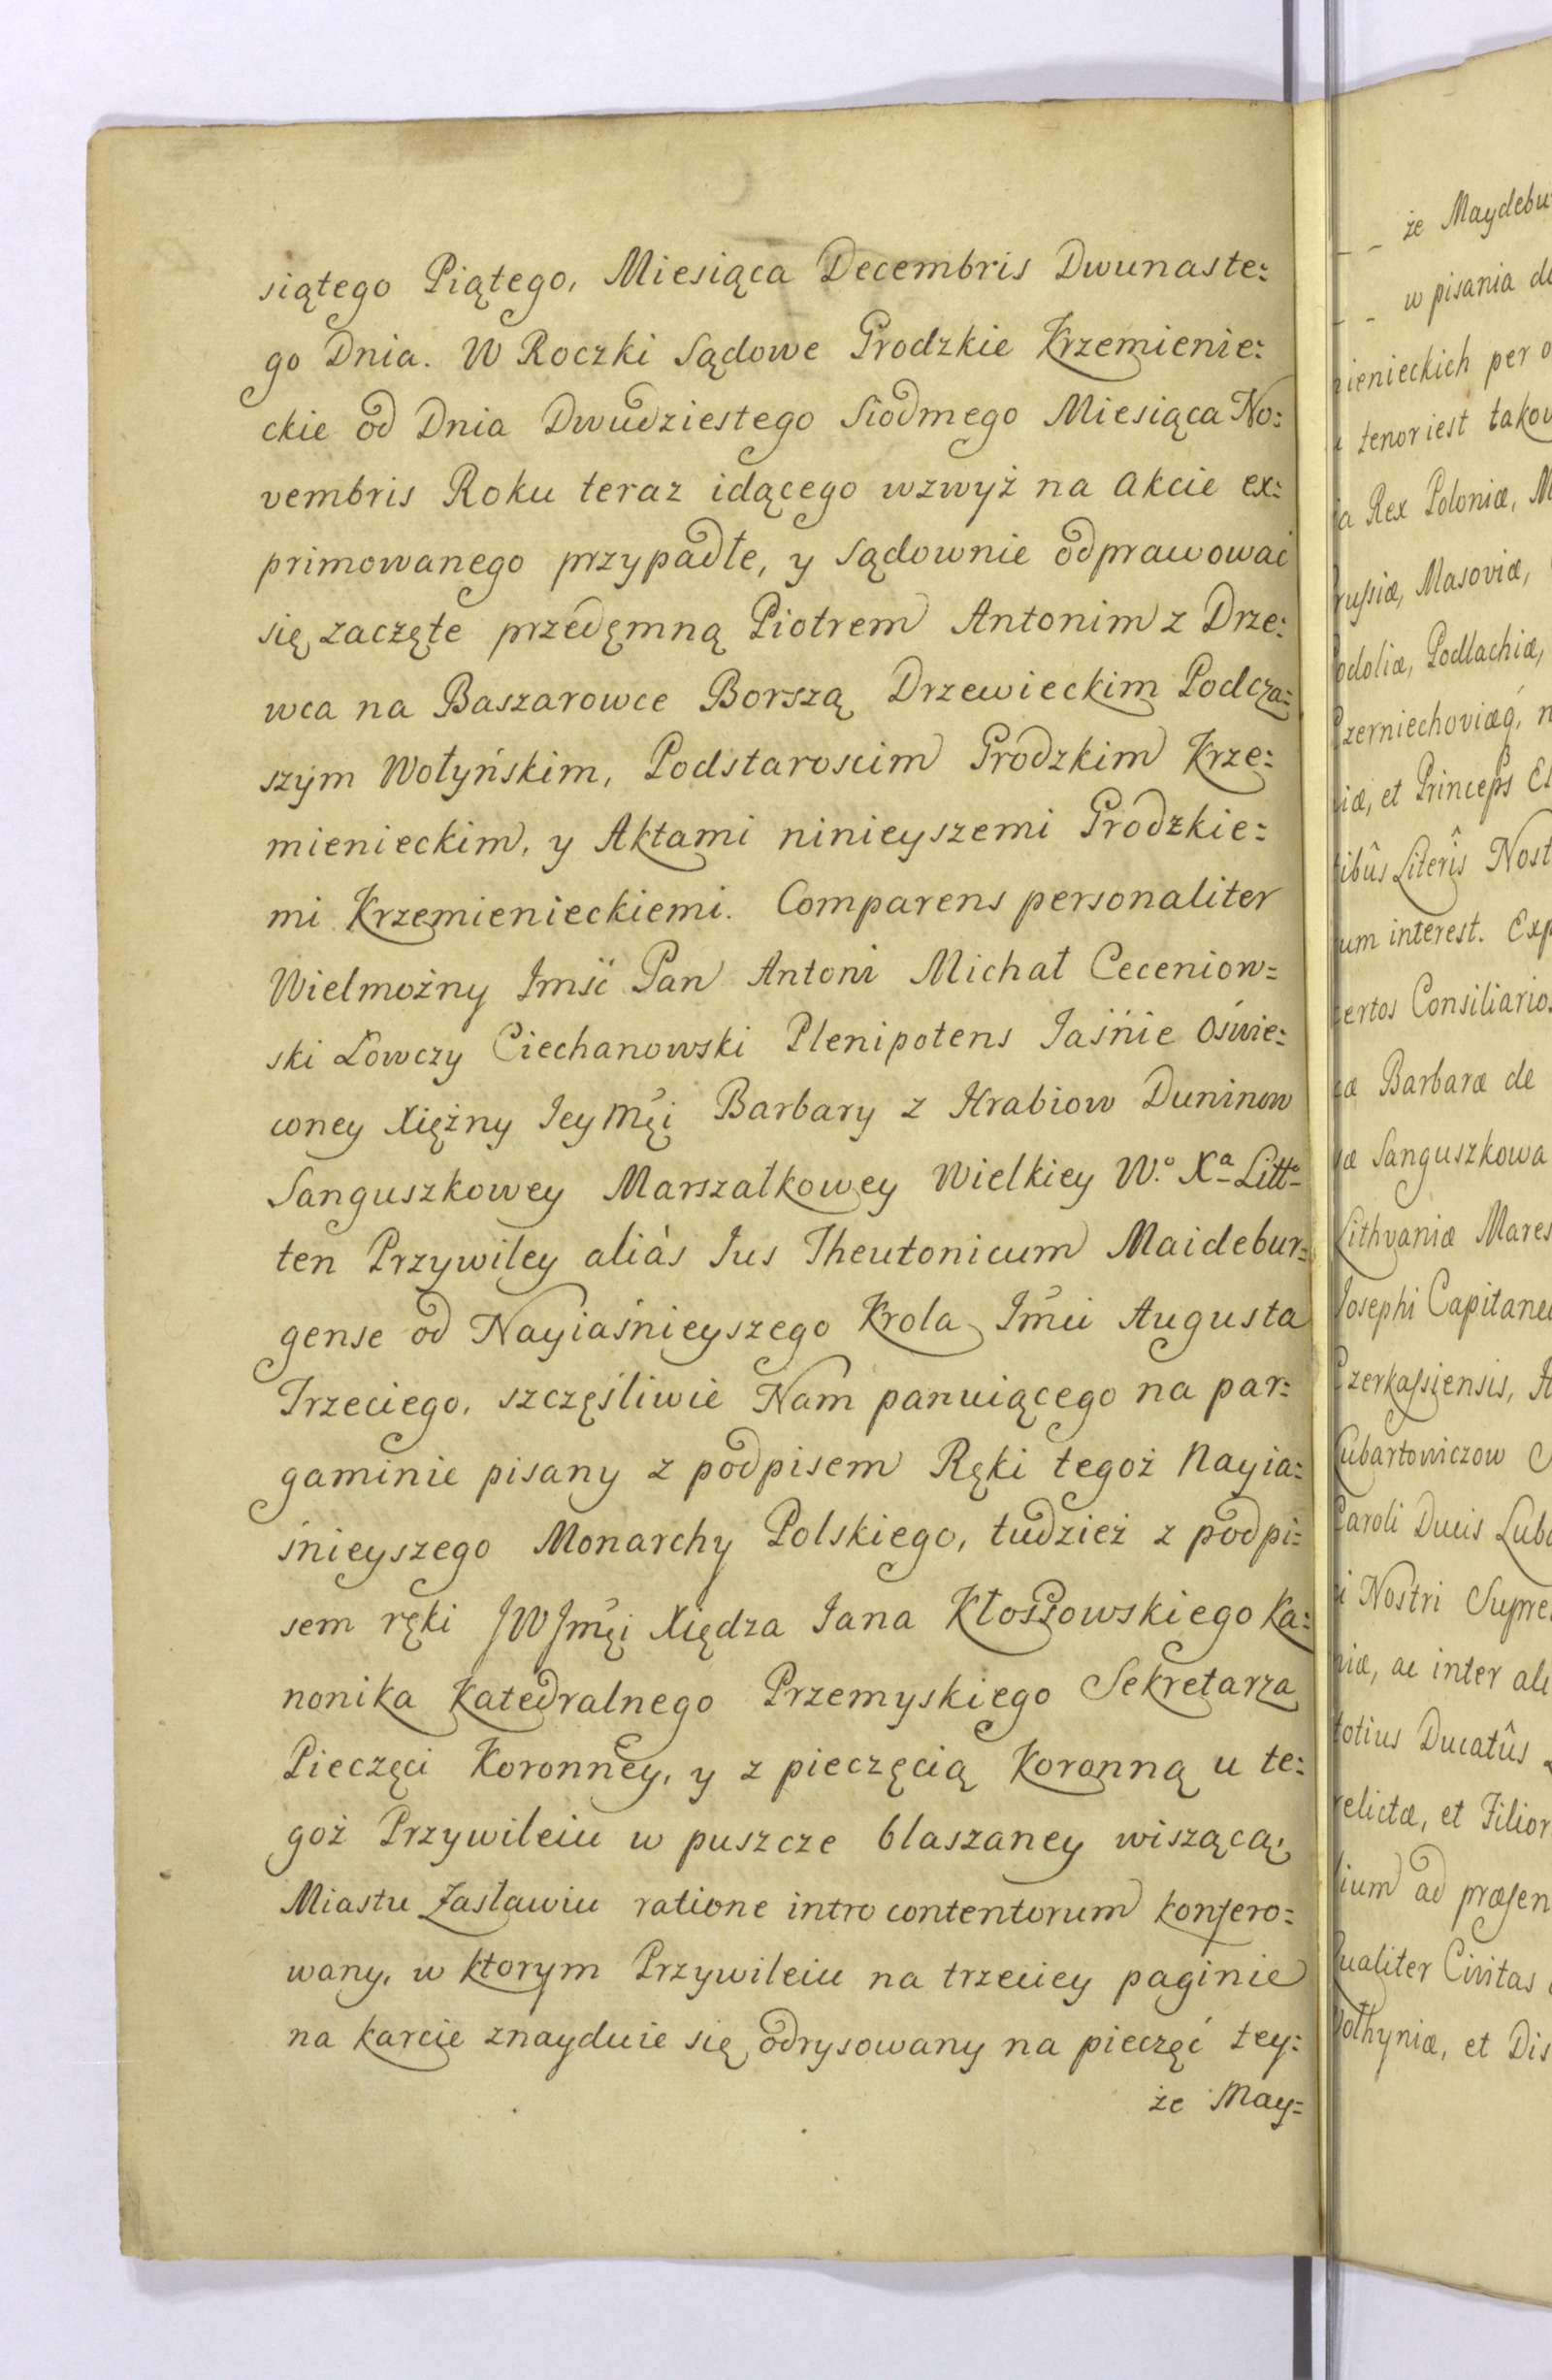 siątego Piątego, Miesiąca Decembris Dwunaste:
go Dnia. W Roczki Sądowe Grodzkie Krzemienie:
ckie od Dnia Dwudziestego Siodmego Miesiąca No:
vembris Roku teraz idącego wzwyż na Akcie ex:
primowanego przypadłe, y Sądownie odprawować
się zaczęte przedęmną Piotrem Antonim z Drze:
wca na Baszarowce Borszą Drzewieckim Podcza:
szym Wołyńskim, Podstaroscim Grodzkim Krze:
mienieckim, y Aktami ninieyszemi Grodzkie:
mi Krzemienieckiemi. Comparens personaliter
Wielmożny Imść Pan Antoni Michał Ceceniow=
ski Łowczy Ciechanowski Plenipotens Jaśnie Oświe:
coney Xiężny Jey Mći Barbary z Hrabiow Duninow
Sanguszkowey Marszałkowey Wielkiey W.° Xª Litt°
ten Przywiley aliàs Jus Theutonicum Maidebur:
gense od Nayiaśnieyszego Krola Imći Augusta
Trzeciego, szczęśliwie Nam panuiącego na par:
gaminie pisany z podpisem Ręki tegoż Nayia:
śnieyszego Monarchy Polskiego, tudzież z podpi:
sem ręki JW Jmći Xiędza Jana Kłossowskiego Ka:
nonika Katedralnego Przemyskiego Sekretarza
Pieczęci Koronney, y z pieczęcią Koronną u te:
goż Przywileiu w puszcze blaszaney wiszącą,
Miastu Zasławiu ratione intro contentorum konfero:
wany, w ktorym Przywileiu na trzeciey paginie
na karcie znayduie się odrysowany na pieczęć tey:
że May=
że Maydebu
w pisania
ienieckich per
tenor iest takow
Rex Poloniæ,
Masoviæ,
Podlachiæ,
et Princeps
Literîs Nost
interest.
Consiliario
Barbaræ de
Sanguszkowa
Lithvaniæ Mares
Josephi Capitane
Czerkasiensis,
Lubartowiczow
Caroli Ducis Lub
Nostri Supre
ac inter
totius Ducatûs
relictæ, et Filior
ad præsen
Qualiter Civitas
et Dis